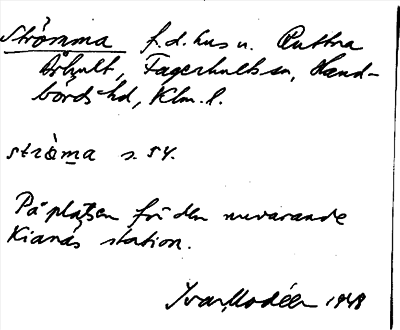 Strömma f.d. hus u. Quttra
Århult, Fagerhults sn, Hand-
börds hd, Klm. l.
stròma s. 54.
På platsen för den nuvarande
Kianäs station.
Ivar Modéer 1948